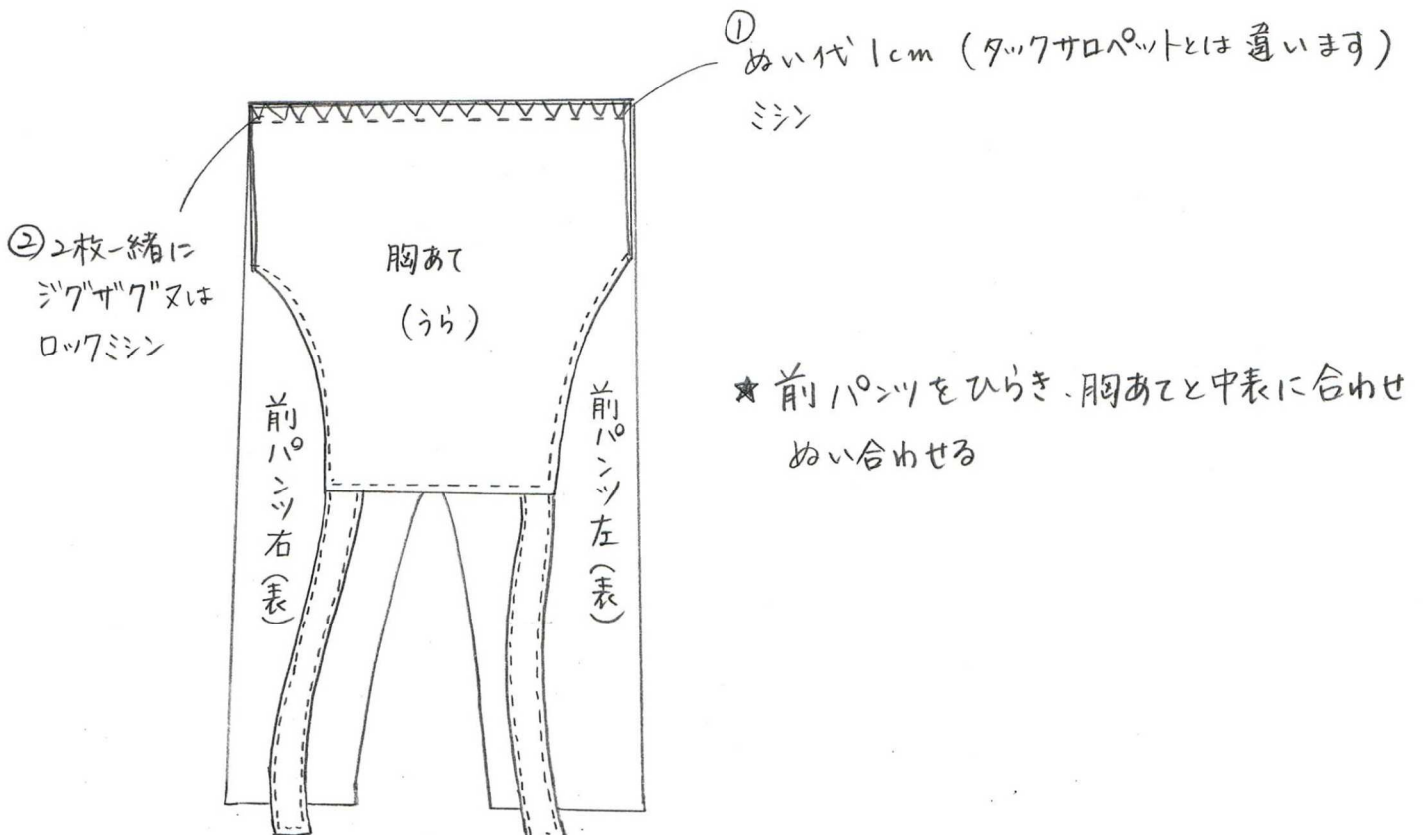 ①
ぬい代 1cm (タックサロペットとは違います)
ミシン
②2枚一緒に
ジグザグ又は
ロックミシン
胸あて
(うら)
前パンツ右(表)
前パンツ左(表)
★ 前パンツをひらき、胸あてと中表に合わせ
ぬい合わせる